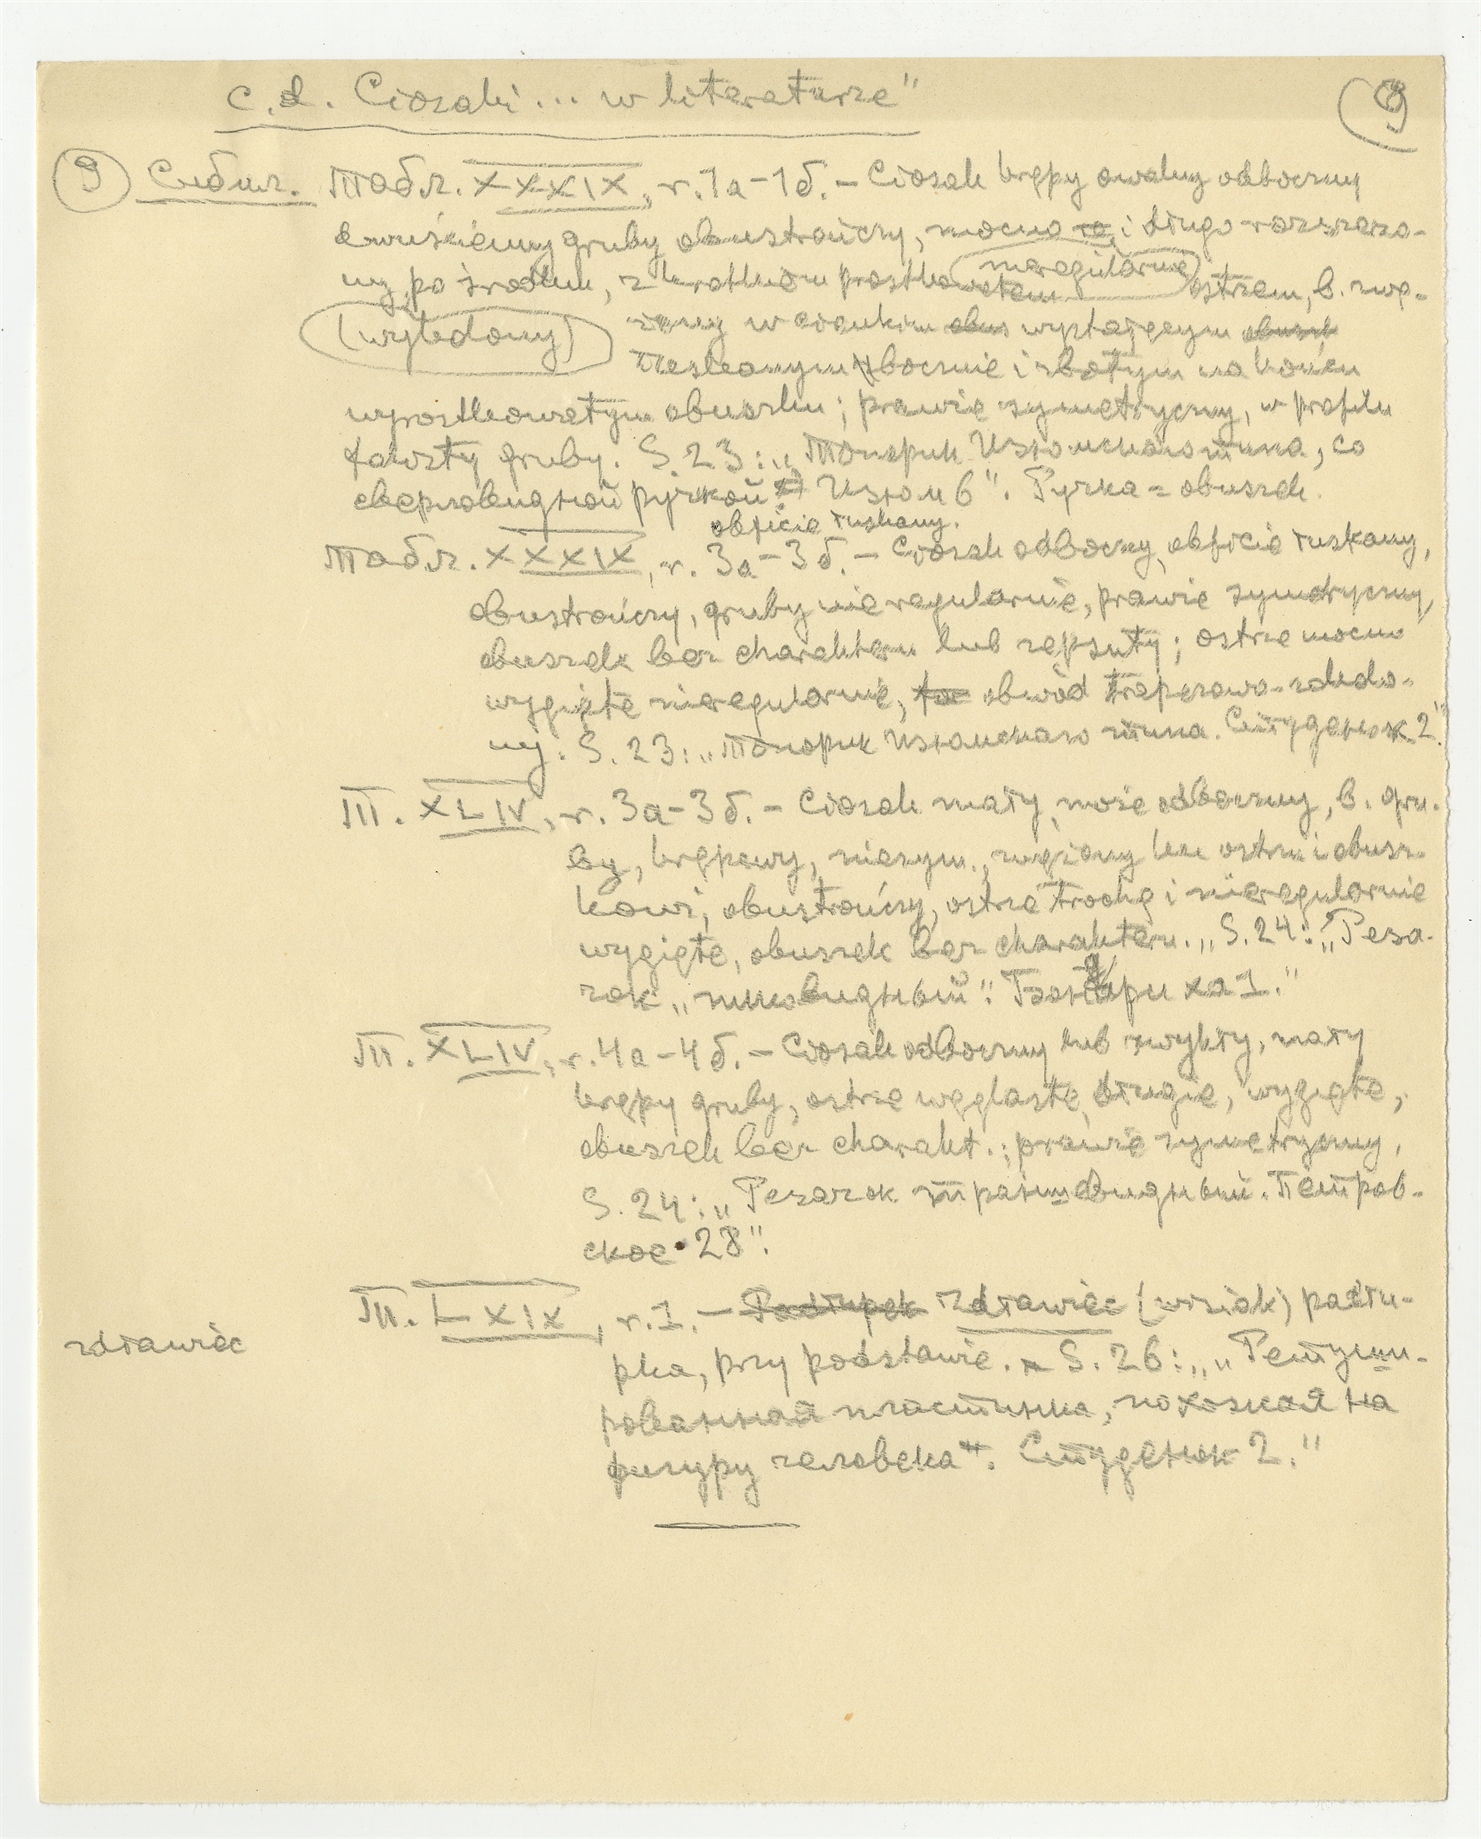 c.d. Ciosaki ... w literaturze"
9
9 Сибил. Табл. XXXIX, r. 1a-1б. – Ciosak krępy owalny odboczny
dwuścienny gruby obustrończy, mocno i długo rozszerzo-
ny po środku, z krótkim prostkowatem nieregularnie ostrzem, b. zwę-
(wględowy) żony w cienkim wystającym
łuskanym bocznie i zbitym na końcu
wyrostkowatym obuszku; prawie symetryczny, w profilu
fałisty gruby. S. 23: „Топорик Изюмскаго типа, со
сверловидной ручкой Изюм 6". Ручка = obuszek.
obficie łuskany.
Табл. XXXIX, r. 3a-3б. – Ciosak odboczny, obficie łuskany,
obustrończy, gruby nieregularnie, prawie symetryczny,
obuszek bez charakteru lub zepsuty; ostrze mocno
wygięte nieregularnie, obwód trapezowo-zaokdo-
ny. S. 23: „Топорик Изюмскаго типа. Студенок 2."
Т. XLIV, r. 3a-3б. – Ciosak mały, może odboczny, b. gru-
by, krępawy, niesym., zwężony ku ostrzu i obusz-
kowi, obustrończy, ostrze trochę i nieregularnie
wygięte, obuszek bez charakteru. „S. 24: „Реза-
чок „пиковидный". Бондариха 1."
Т. XLIV, r. 4a-4б. – Ciosak odboczny lub zwykły, mały
krępy gruby, ostrze węglaste, długie, wygięte,
obuszek bez charakt.; prawie symetryczny,
S. 24: „Резачок траншевидный. Петров-
ское 28".
Т. LXIX, r. 1. – Podłupek zdławiec (wisiak) padłu-
zdławiec
pka, przy podstawie. S. 26: „„Ретуши-
рованная пластинка, похожая на
фигуру человека". Студенок 2."